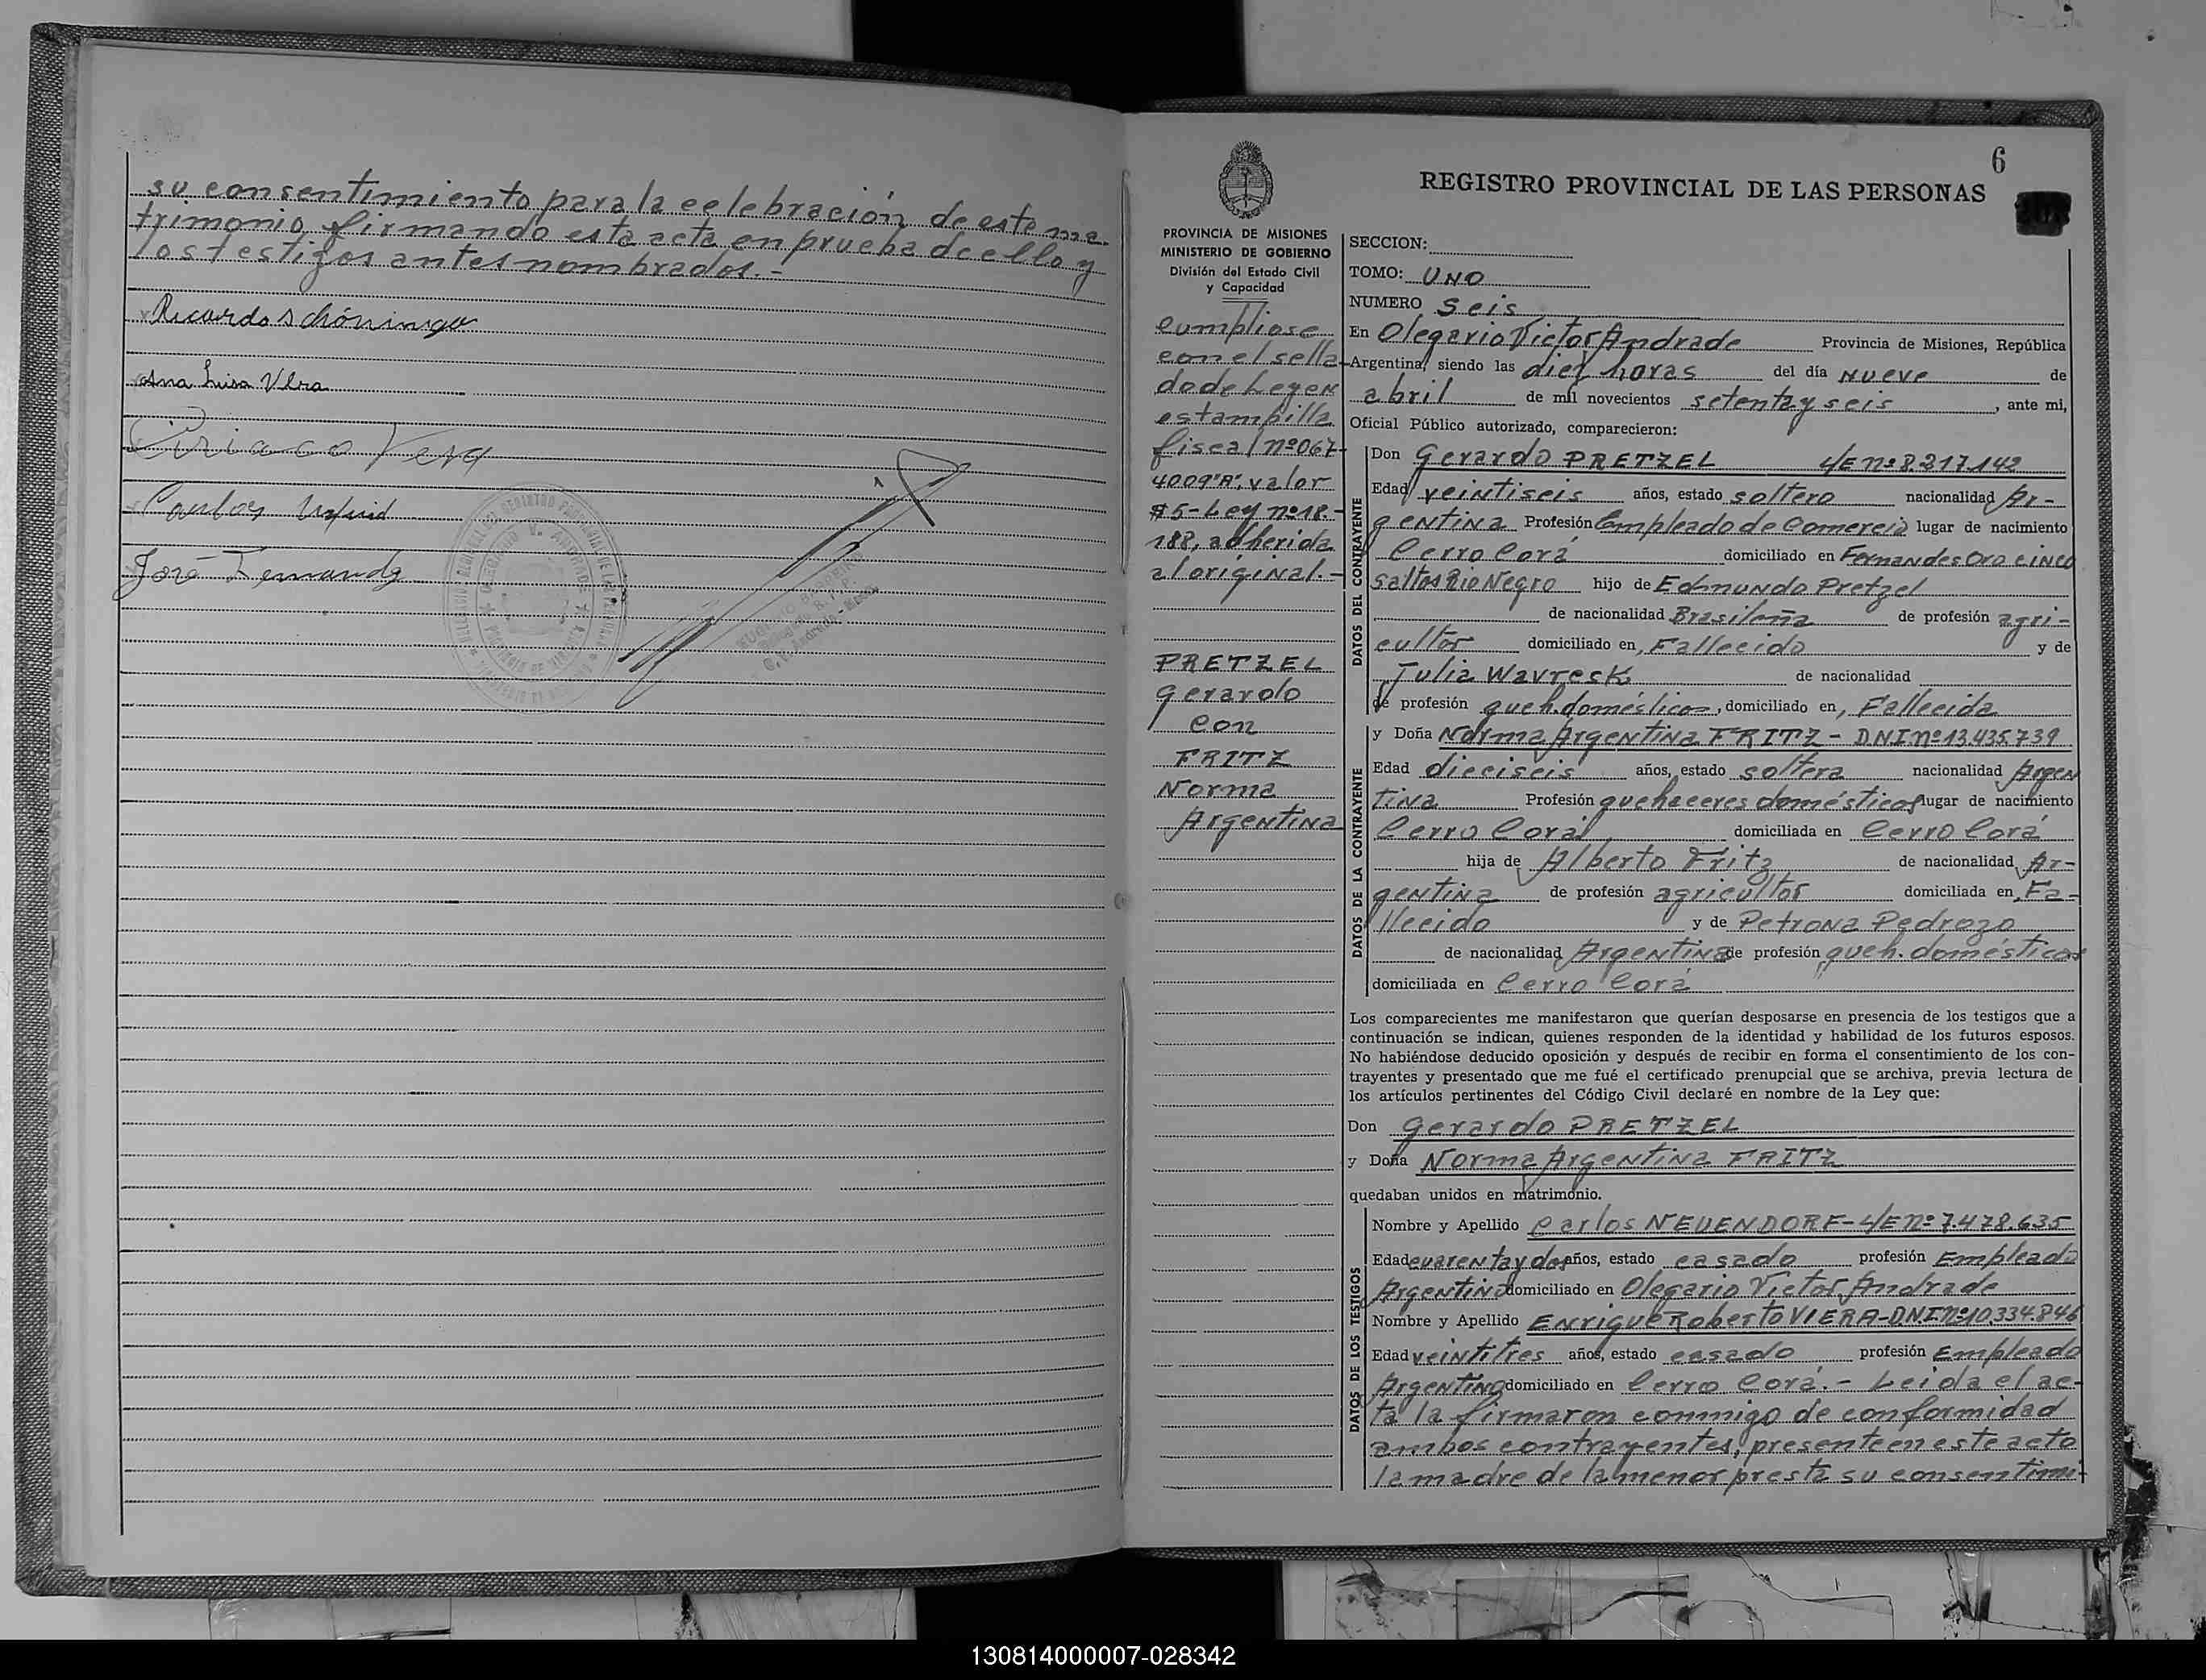 su consentimiento para la celebración de este ma-
trimonio firmando esta acta en prueba de ello y
los testigos antes nombrados.-
Ricardo Schöninger
Ana Luisa Vera
Ciriaco Vera
Carlos
José
6
REGISTRO PROVINCIAL DE LAS PERSONAS
PROVINCIA DE MISIONES
MINISTERIO DE GOBIERNO
División del Estado Civil
y Capacidad
cumpliose
con el sella-
do de Ley en
estampilla
fiscal nº 067-
4009"A", valor
$5- Ley nº 18.-
188, adherida
al original.-
PRETZEL
Gerardo
con
FRITZ
Norma
Argentina
SECCION:
TOMO: UNO
NUMERO Seis
En Olegario Victor Andrade Provincia de Misiones, República
Argentina, siendo las diez horas del día Nueve de
abril de mil novecientos setenta y seis, ante mi,
Oficial Público autorizado, comparecieron:
DATOS DEL CONTRAYENTE
Don Gerardo PRETZEL L/E nº 8.217.142
Edad veintiseis años, estado soltero nacionalidad Ar-
gentina Profesión Empleado de Comercio lugar de nacimiento
Cerro Corá domiciliado en Fernandes Oro cinco
saltos Rio Negro hijo de Edmundo Pretzel
de nacionalidad Brasileña de profesión agri-
cultor domiciliado en, Fallecido y de
Julia Wavresk de nacionalidad
de profesión queh. domésticos, domiciliado en, Fallecida
DATOS DE LA CONTRAYENTE
y Doña Norma Argentina FRITZ - DNI nº 13.435.739
Edad dieciseis años, estado soltera nacionalidad Argen
tina Profesión quehaceres domésticos lugar de nacimiento
Cerro Corá domiciliada en Cerro Corá
hija de Alberto Fritz de nacionalidad Ar-
gentina de profesión agricultor domiciliada en, Fa-
llecido y de Petrona Pedrozo
de nacionalidad Argentina de profesión queh. domésticos
domiciliada en Cerro Corá
Los comparecientes me manifestaron que querían desposarse en presencia de los testigos que a
continuación se indican, quienes responden de la identidad y habilidad de los futuros esposos.
No habiéndose deducido oposición y después de recibir en forma el consentimiento de los con-
trayentes y presentado que me fué el certificado prenupcial que se archiva, previa lectura de
los artículos pertinentes del Código Civil declaré en nombre de la Ley que:
Don Gerardo PRETZEL
y Doña Norma Argentina FRITZ
quedaban unidos en matrimonio.
DATOS DE LOS TESTIGOS
Nombre y Apellido Carlos NEUENDORF - L/E nº 7.478.635
Edad cuarenta y dos años, estado casado profesión Empleado
Argentino domiciliado en Olegario Victor Andrade
Nombre y Apellido Enrique Roberto VIERA - D.N.I. nº 10.334.846
Edad veintitres años, estado casado profesión Empleado
Argentino domiciliado en Cerro Corá.- Leida el ac-
ta la firmaron conmigo de conformidad
ambos contrayentes, presente en este acto
la madre de la menor presta su consentimi-
130814000007-028342